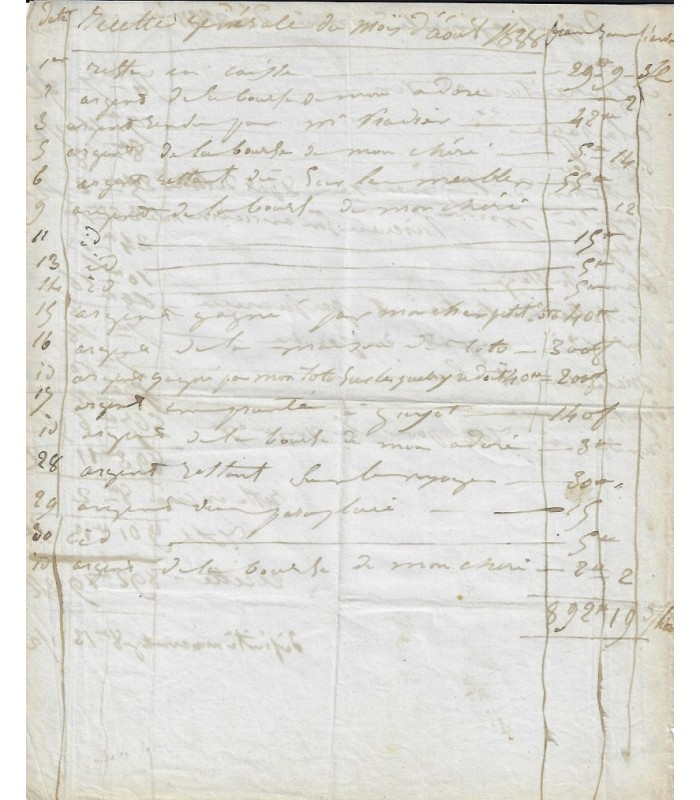 date Recette générale du mois d'août 1838 francs sous liards
1er reste en caisse 29 9
2 argent de la bourse de mon adoré 2
3 argent rendu par Mr Pradier 42
5 argent de la bourse de mon chéri 5 14
6 argent restant de sur le meuble 55
9 argent de la bourse de mon chéri 12
11 id 15
13 id 5
14 id 5
15 argent gagné par mon cher petit toto 40
16 argent de la maison de toto 300f
id argent gagné par mon toto sur les 200f
17 argent emprunté à Guyot 140f
id argent de la bourse de mon adoré 3
28 argent restant sur le voyage 30
29 argent d'un parapluie 15
30 id 5
id argent de la bourse de mon chéri 2 2
892 19